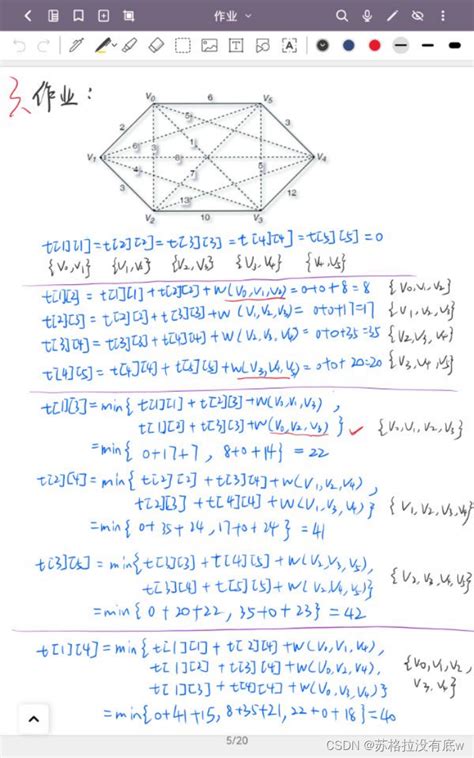 作业
作业：
V₀ 6 V₅
2 5 3
V₁ 6 3 1 6 V₄
4 7 5
3 13 12
V₂ 10 V₃
t[1][1]=t[2][2]=t[3][3]=t[4][4]=t[5][5]=0
{V₀,V₁} {V₁,V₂} {V₂,V₃} {V₃,V₄} {V₄,V₅}
t[1][2] = t[1][1]+t[2][2]+W(V₀,V₁,V₂)=0+0+8=8 {V₀,V₁,V₂}
t[2][3] = t[2][2]+t[3][3]+W(V₁,V₂,V₃)= 0+0+17=17 {V₁,V₂,V₃}
t[3][4] = t[3][3]+t[4][4]+W(V₂,V₃,V₄)= 0+0+35=35 {V₂,V₃,V₄}
t[4][5] = t[4][4]+t[5][5]+W(V₃,V₄,V₅)=0+0+20=20 {V₃,V₄,V₅}
t[1][3]=min{ t[1][1]+t[2][3]+W(V₀,V₁,V₃),
t[1][2]+t[3][3]+W(V₀,V₂,V₃) } ✓ {V₀,V₁,V₂,V₃}
=min{ 0+17+7, 8+0+14} = 22
t[2][4]=min{ t[2][2]+t[3][4]+W(V₁,V₂,V₄),
t[2][3]+t[4][4]+W(V₁,V₃,V₄)} {V₁,V₂,V₃,V₄}
=min{0+35+24,17+0+24} =41
t[3][5]=min{t[3][3]+t[4][5]+W(V₂,V₃,V₅),
t[3][4]+t[5][5]+W(V₂,V₄,V₅)} {V₂,V₃,V₄,V₅}
=min{0+20+22,35+0+23}=42
t[1][4]=min{t[1][1]+t[2][4]+W(V₀,V₁,V₄),
t[1][2]+t[3][4]+W(V₀,V₂,V₄), {V₀,V₁,V₂,
t[1][3]+t[4][4]+W(V₀,V₃,V₄)} V₃,V₄}
=min{0+41+15,8+35+21,22+0+18}=40
5/20
CSDN @苏格拉没有底w